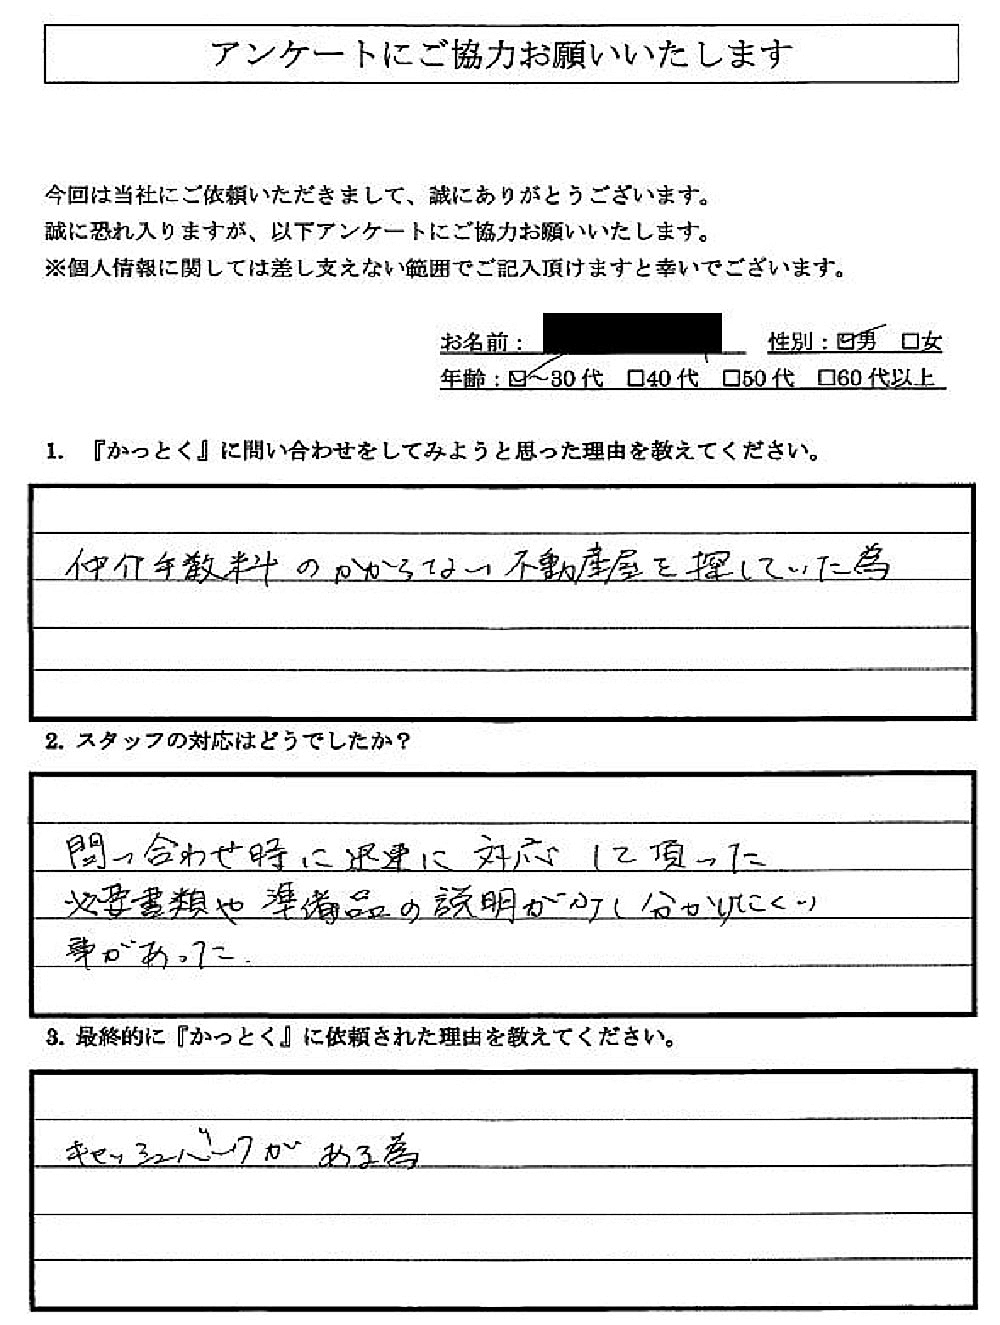 アンケートにご協力お願いいたします
今回は当社にご依頼いただきまして、誠にありがとうございます。
誠に恐れ入りますが、以下アンケートにご協力お願いいたします。
※個人情報に関しては差し支えない範囲でご記入頂けますと幸いでございます。
お名前： 性別：☑男 □女
年齢：☑～30代 □40代 □50代 □60代以上
1. 『かっとく』に問い合わせをしてみようと思った理由を教えてください。
仲介手数料のかからない不動産屋を探していた為
2. スタッフの対応はどうでしたか？
問い合わせ時に迅速に対応して頂いた
必要書類や準備品の説明が少し分かりにくい
事があった.
3. 最終的に『かっとく』に依頼された理由を教えてください。
キャッシュバックがある為